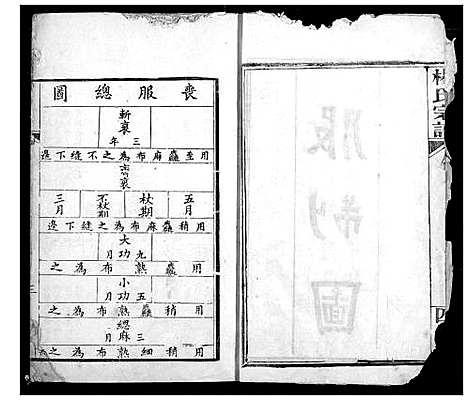 林氏宗譜
服制圖
喪服總圖
斬衰
三年
用至麤麻布為之不縫下邊
齊衰
五月
杖期
不杖期
三月
用稍麤麻布為之縫下邊
大功
九月
用麤熟布為之
小功
五月
用稍麤熟布為之
緦麻
三月
用稍細熟布為之
三